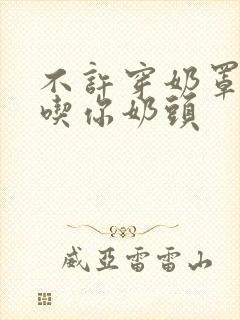 不許穿奶罩
喫你奶頭
威亞雷雷山